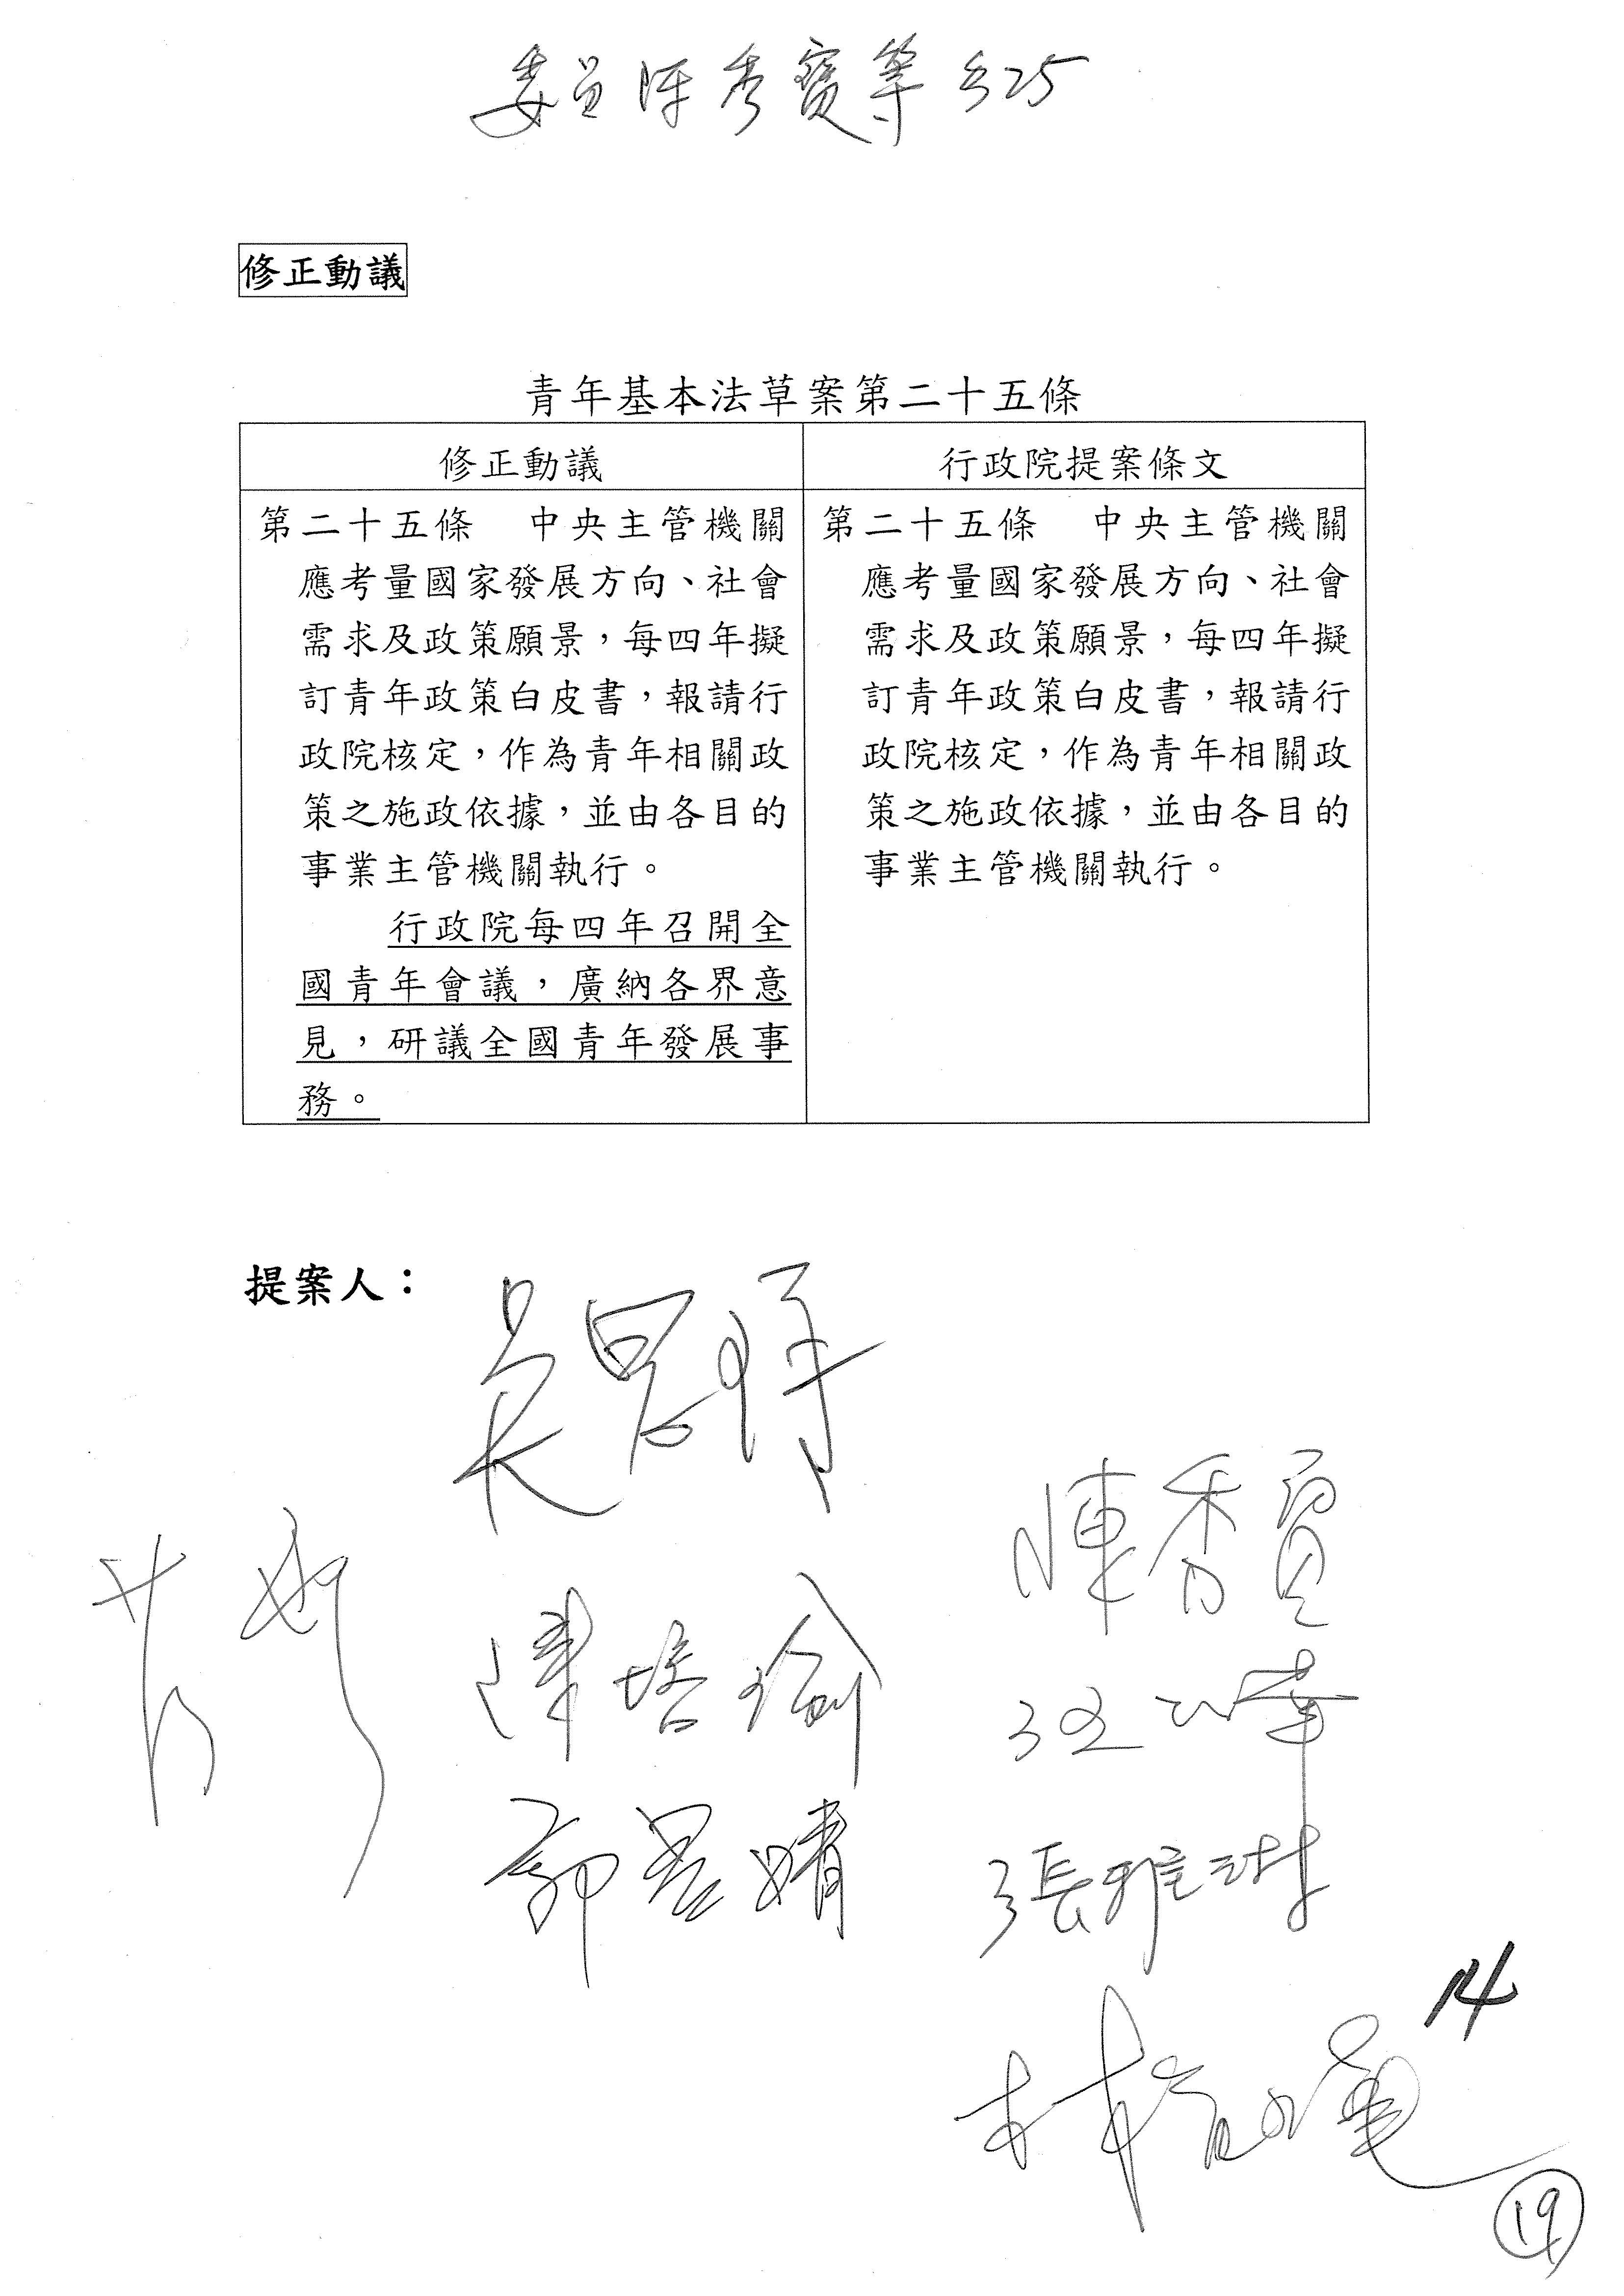 委員陳秀寶等 §25
修正動議
青年基本法草案第二十五條
修正動議
第二十五條　中央主管機關
應考量國家發展方向、社會
需求及政策願景，每四年擬
訂青年政策白皮書，報請行
政院核定，作為青年相關政
策之施政依據，並由各目的
事業主管機關執行。
行政院每四年召開全
國青年會議，廣納各界意
見，研議全國青年發展事
務。
行政院提案條文
第二十五條　中央主管機關
應考量國家發展方向、社會
需求及政策願景，每四年擬
訂青年政策白皮書，報請行
政院核定，作為青年相關政
策之施政依據，並由各目的
事業主管機關執行。
提案人：
陳秀寶
陳培瑜
郭昱晴
張雅琳
14
19